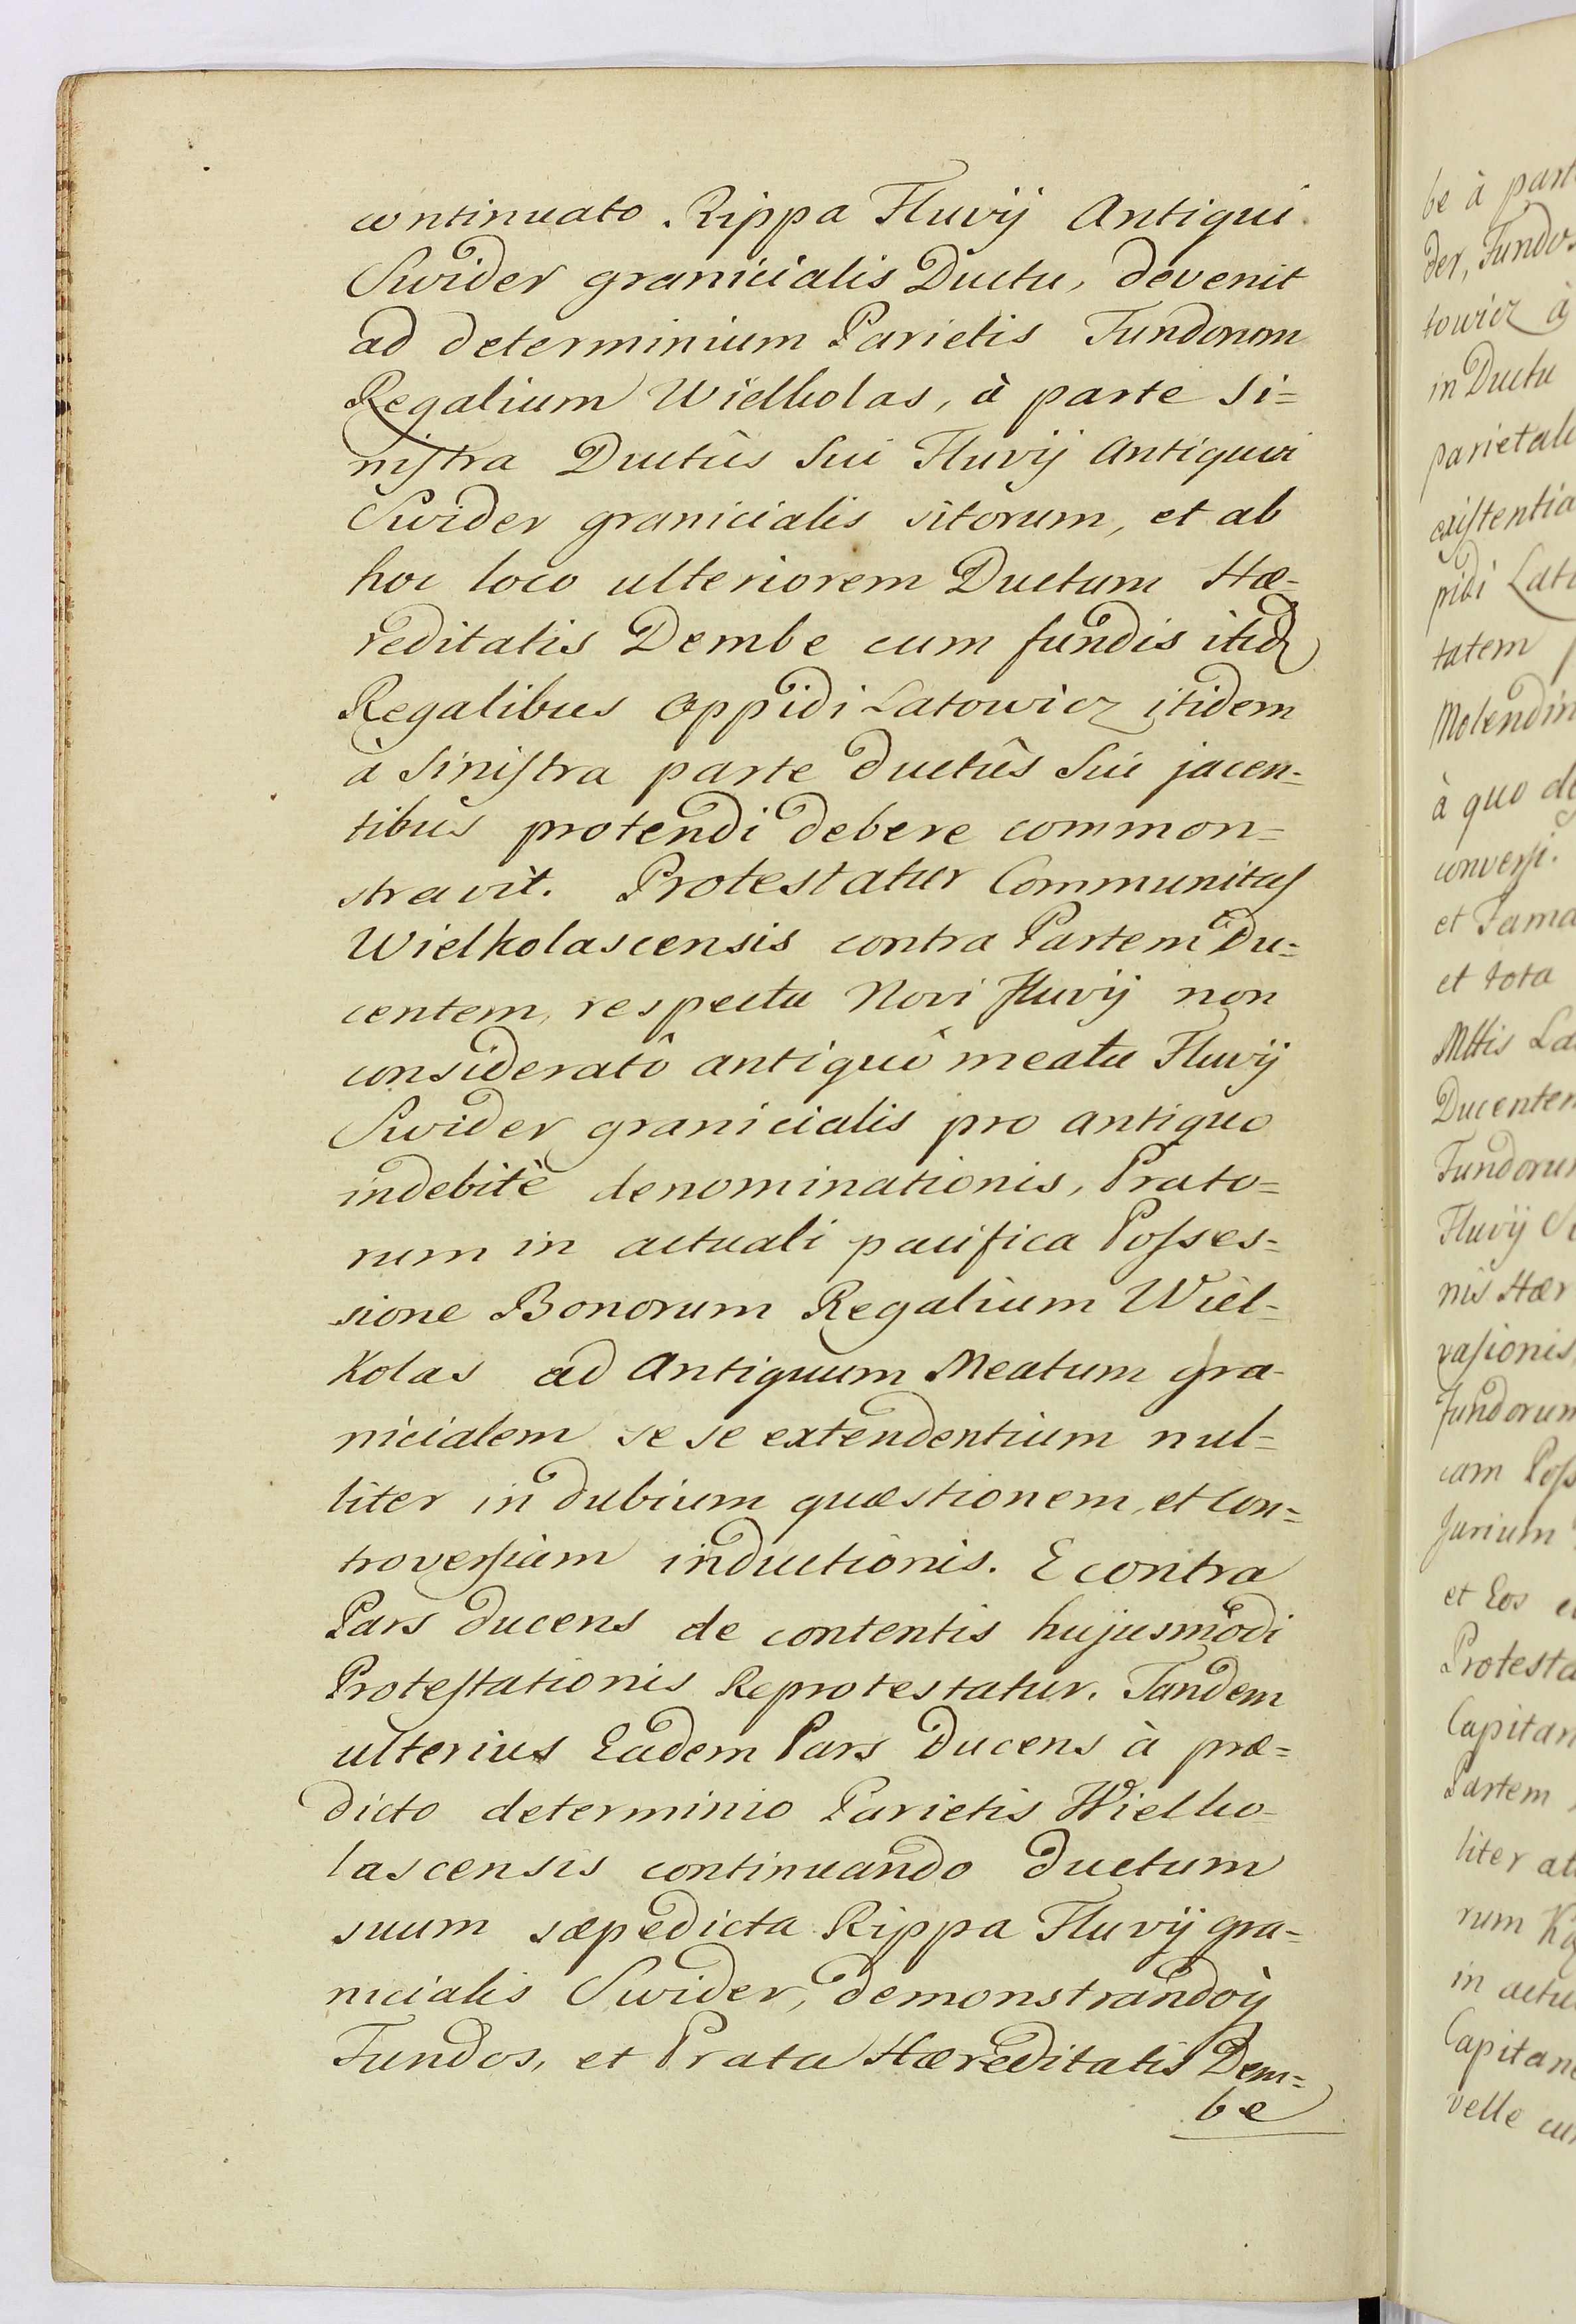 continuato Rippa Fluvij Antiqui
Swider granicialis Ductu, devenit
ad determinium Parietis Fundorum
Regalium Wielkolas, à parte Si=
niſtra Ductûs Sui Fluvij Antiqui
Swider granicialis sitorum, et ab
hoc loco ulteriorem Ductum Hæ=
reditatis Dembe cum fundis itid
Regalibus Oppidi Latowicz itidem
à Siniſtra parte ductûs Sui jacen=
tibus protendi debere common=
stravit. Protestatur Communitas
Wielkolascensis contra Partem Du=
centem, respectu Novi Fluvij non
consideratô antiquô meatu Fluvij
Swider granicialis pro antiquo
indebitè denominationis, Prato=
rum in actuali pacifica Poſses=
sione Bonorum Regalium Wiel=
kolas ad Antiquum Meatum gra-
nicialem se se extendentium nul=
liter in dubium quæstionem, et Con=
troverſiam inductionis. E contra
Pars ducens de contentis hujusmodi
Proteſtationis Reprotestatur. Tandem
ulterius Eadem Pars Ducens à præ=
dicto determinio Parietis Wielko-
lascensis continuando ductum
suum sæpedicta Rippa Fluvij gra=
nicialis Swider, demonstrandoq
Fundos, et Prata Hæreditatis Dem=
be
be à part
der, Fundos
towicz à
in Ductu
parietal
exiſtentia
pidi Lato
tatem
Molendin
à quo de
converſi.
et Fama
et tota
Mttis La
Ducentem
Fundorum
Fluvij S
nis Hær
vaſionis
fundorum
cam Poſs
Jurium
et Eos
Protesta
Capitan
Partem
liter at
rum
in actu
Capitane
velle cu